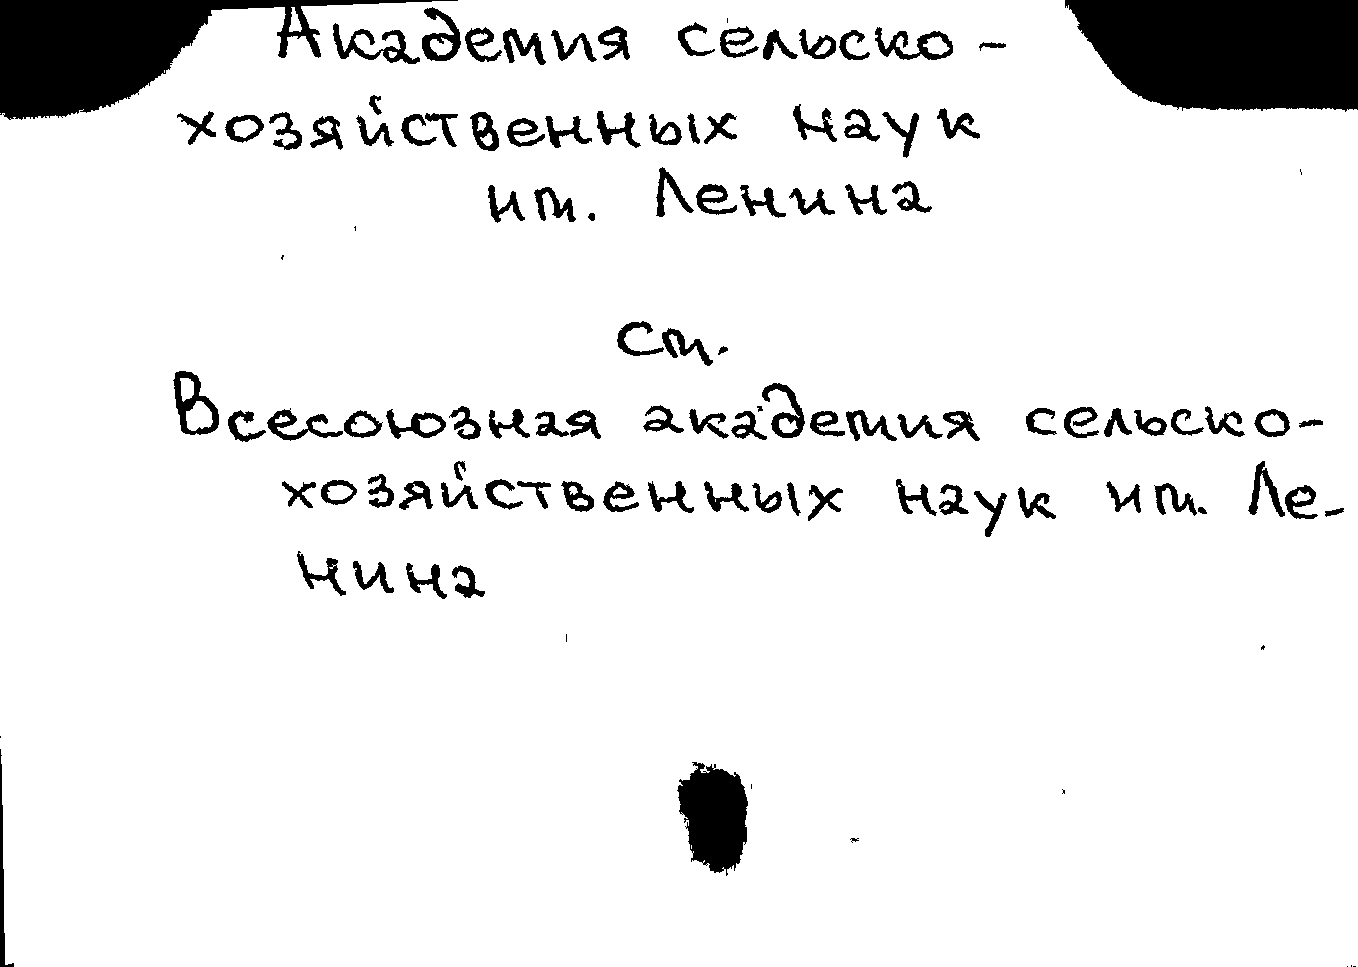 Академия сельско-
хозяйственных наук
им. Ленина
см.
Всесоюзная академия сельско-
хозяйственных наук им. Ле-
нина